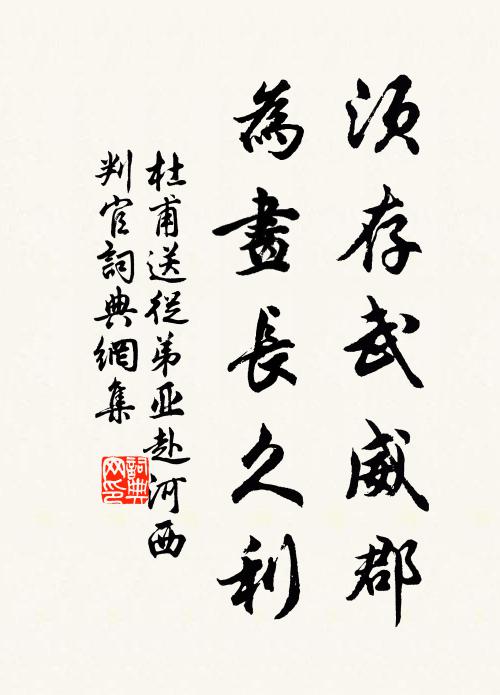 须存武威郡
為畫長久利
杜甫送從弟亚赴河西
判官詞典網集
詞典
网印